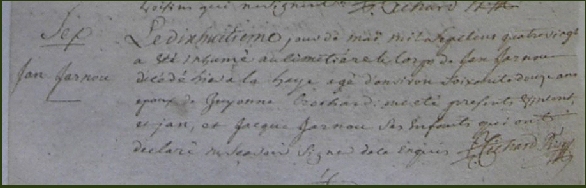 Sep
Jan Jarnou
Le dixhuitieme jour de may mil sept cens quatrevingt
a été inhumé au cimetiere le corps de Jan Jarnou
décédé hier a la haye agé d'environ soixante douze ans
epoux de Guyonne Crechard. ont été presents
et jan, et Jacque Jarnou ses Enfants qui ont
declaré ne scavoir signer de ce Enquis